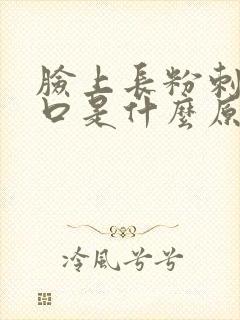 臉上長粉刺
口是什麼原
冷風兮兮